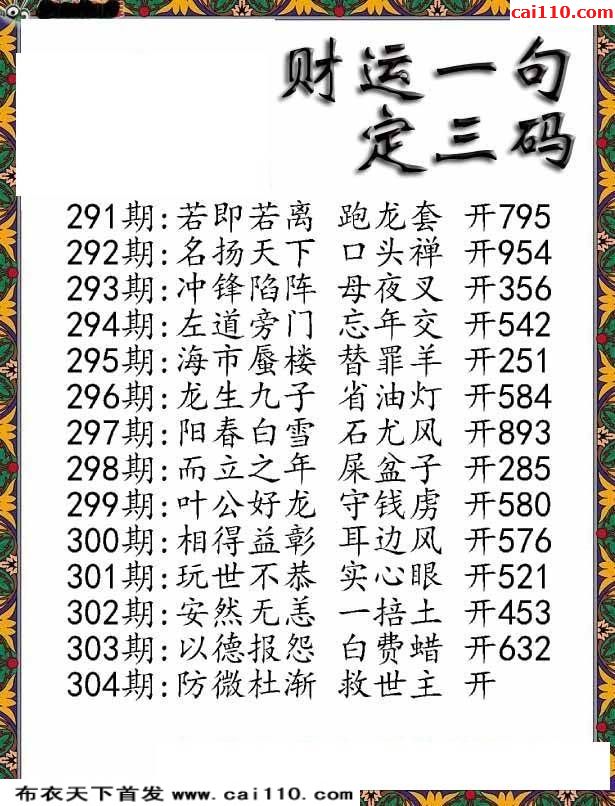 cai110.com
财运一句
定三码
291期:若即若离 跑龙套 开795
292期:名扬天下 口头禅 开954
293期:冲锋陷阵 母夜叉 开356
294期:左道旁门 忘年交 开542
295期:海市蜃楼 替罪羊 开251
296期:龙生九子 省油灯 开584
297期:阳春白雪 石尤风 开893
298期:而立之年 屎盆子 开285
299期:叶公好龙 守钱虏 开580
300期:相得益彰 耳边风 开576
301期:玩世不恭 实心眼 开521
302期:安然无恙 一掊土 开453
303期:以德报怨 白费蜡 开632
304期:防微杜渐 救世主 开
布衣天下首发 www.cai110.com